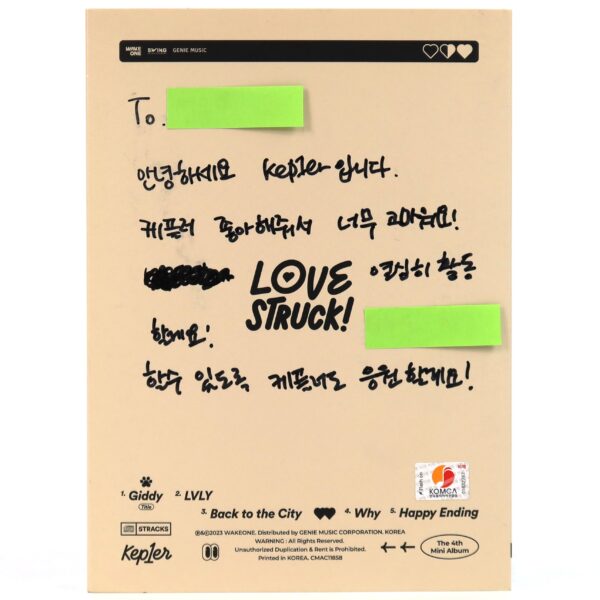 WAKE ONE SWING GENIE MUSIC
To.
안녕하세요 kep1er 입니다.
케플러 좋아해줘서 너무 고마워요!
열심히 활동
LOVE STRUCK!
할게요!
할수 있도록 케플러도 응원할게요!
KOMCA
1. Giddy 2. LVLY
Title
3. Back to the City 4. Why 5. Happy Ending
5TRACKS
Kep1er
℗&©2023 WAKEONE. Distributed by GENIE MUSIC CORPORATION. KOREA
WARNING : All Rights Reserved.
Unauthorized Duplication & Rent is Prohibited.
Printed in KOREA. CMAC11858
The 4th
Mini Album